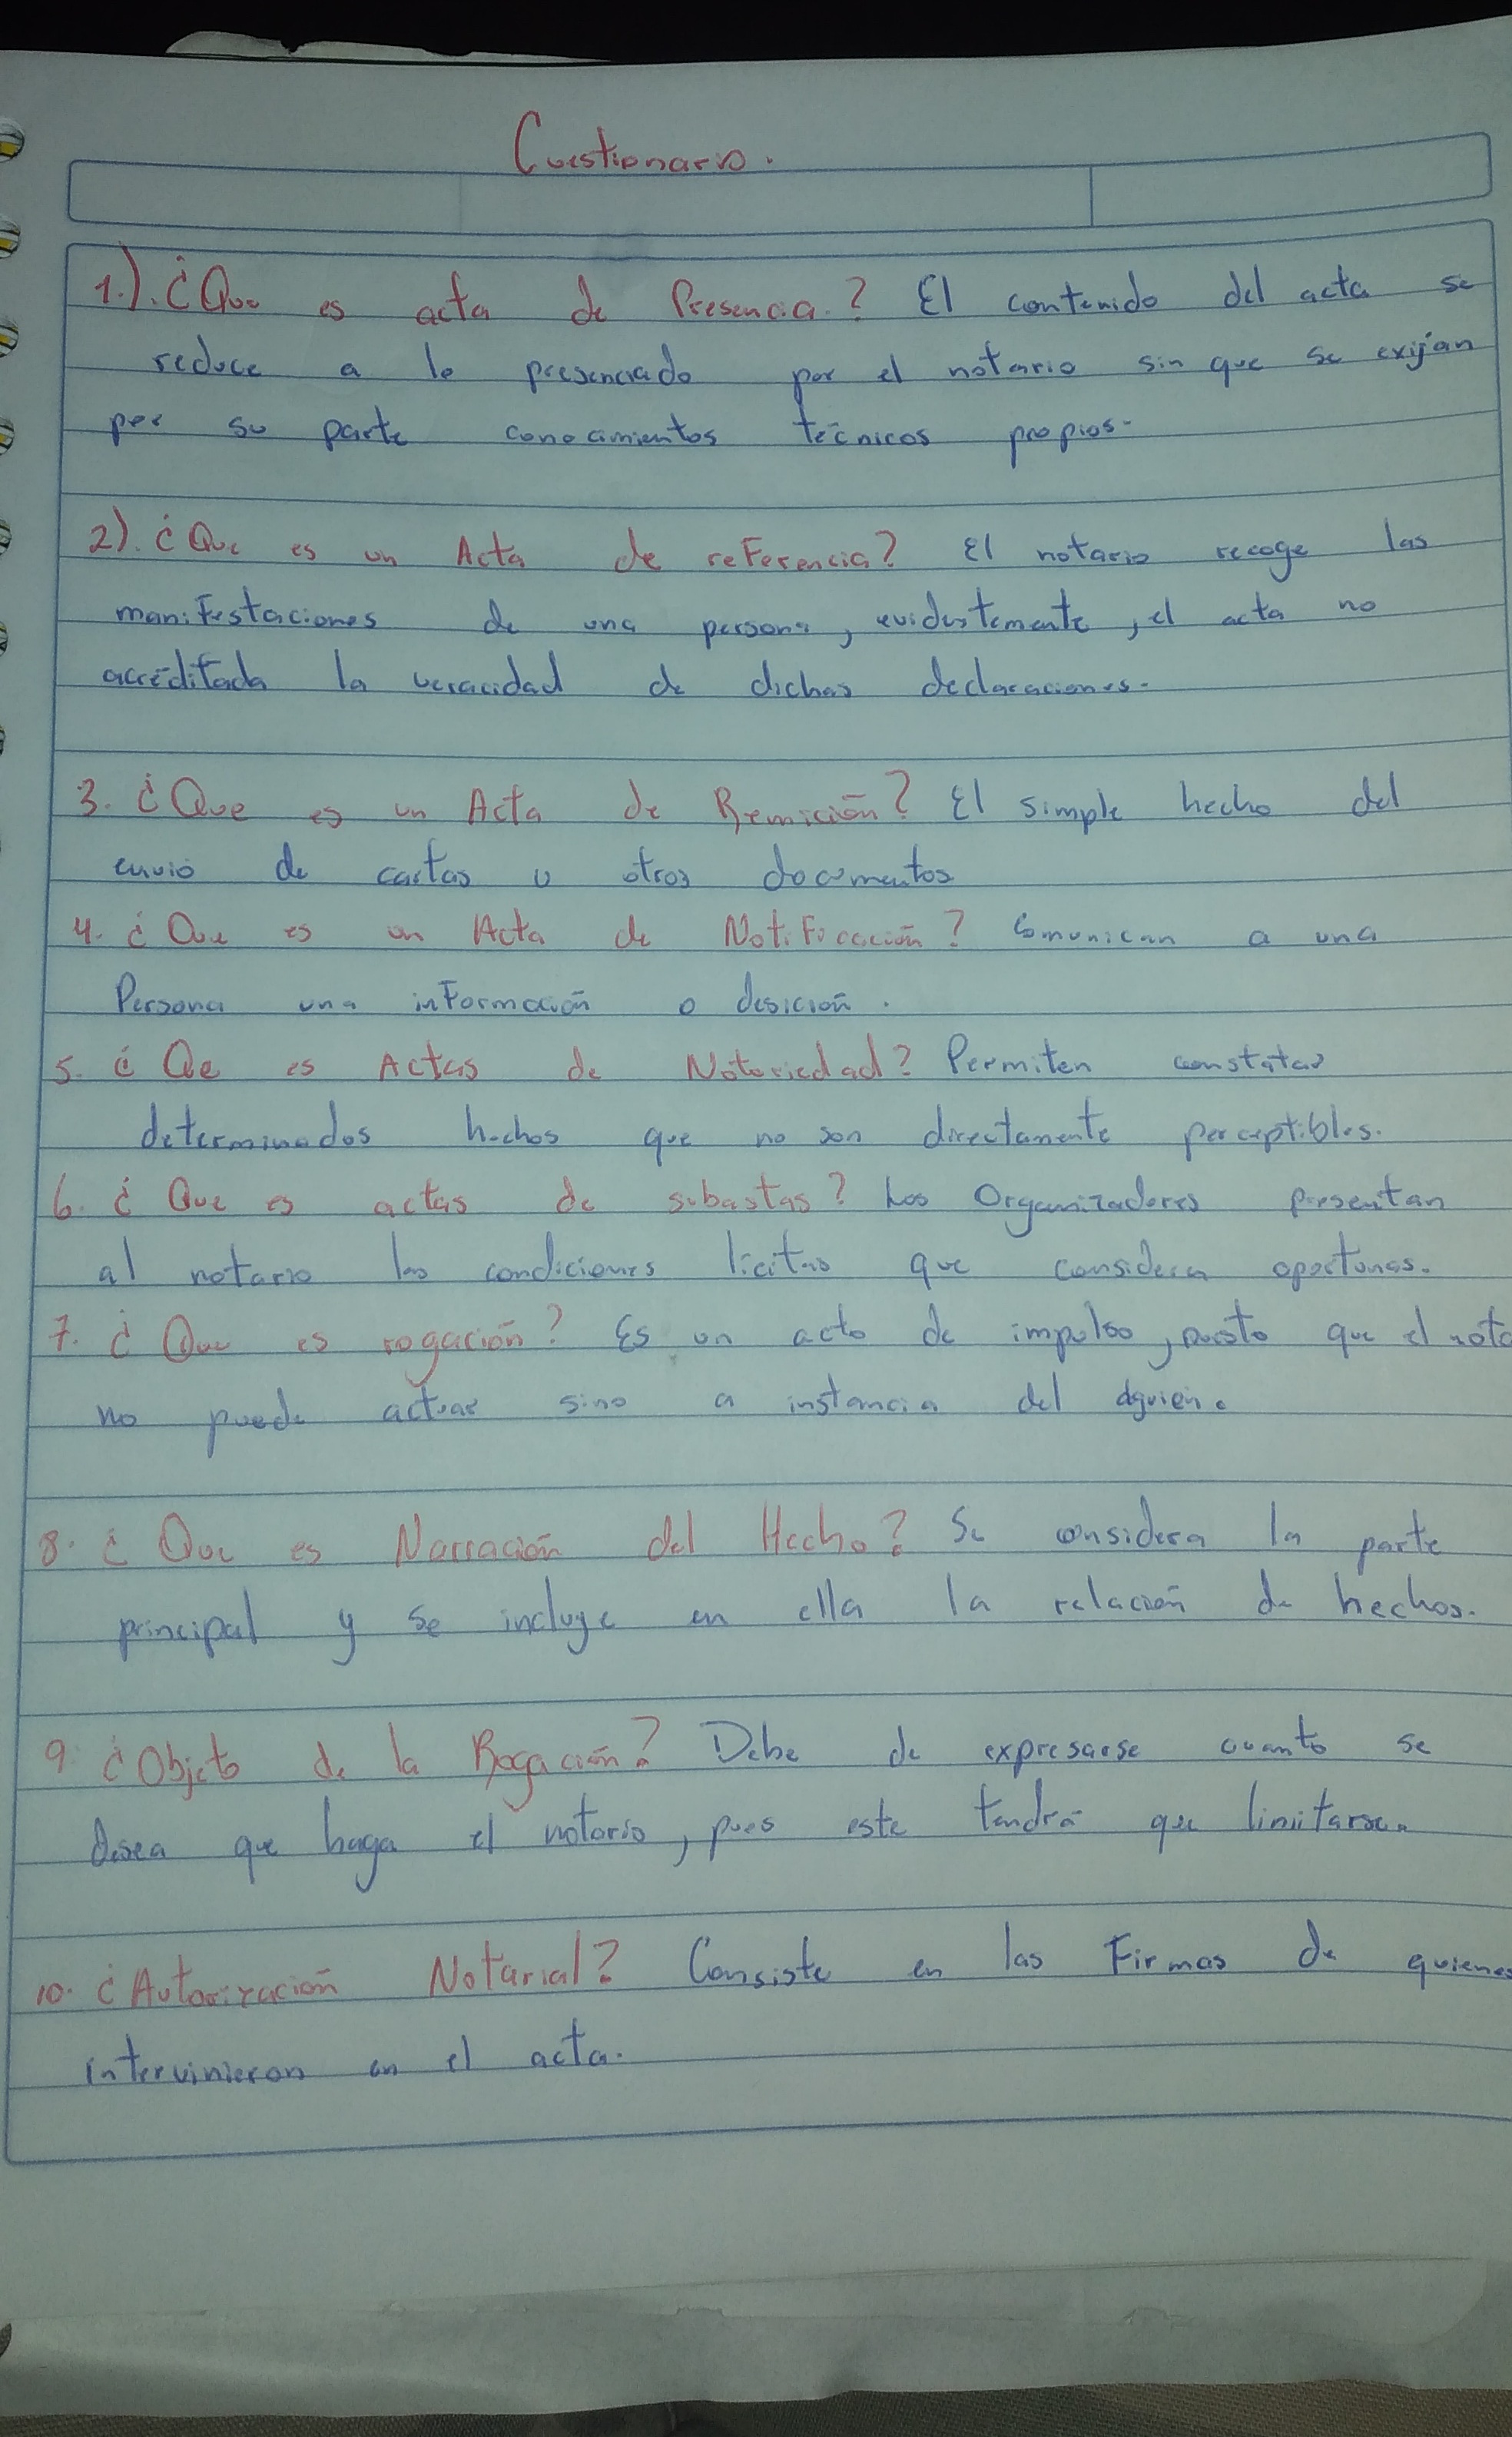 Cuestionario.
1.). ¿Que es acta de Presencia.? El contenido del acta se
reduce a lo presenciado por el notario sin que se exijan
por su parte conocimientos técnicos propios.
2). ¿Que es un Acta de referencia? El notario recoge las
manifestaciones de una persona, evidentemente, el acta no
acreditada la veracidad de dichas declaraciones.
3. ¿Que es un Acta de Remición? El simple hecho del
envio de cartas u otros documentos
4. ¿Que es un Acta de Notificación? Comunican a una
Persona una información o desición.
5. ¿Qe es Actas de Notoriedad? Permiten constatar
determinados hechos que no son directamente perceptibles.
6. ¿Que es actas de subastas? Los Organizadores presentan
al notario las condiciones licitas que considera oportunas.
7. ¿Que es rogación? Es un acto de impulso, puesto que el nota
no puede actuar sino a instancia del alguien.
8. ¿Que es Narración del Hecho? Se considera la parte
principal y se incluye en ella la relación de hechos.
9 ¿Objeto de la Rogación? Debe de expresarse cuanto se
desea que haga el notario, pues este tendrá que limitarse.
10. ¿Autorización Notarial? Consiste en las Firmas de quienes
intervinieron en el acta.